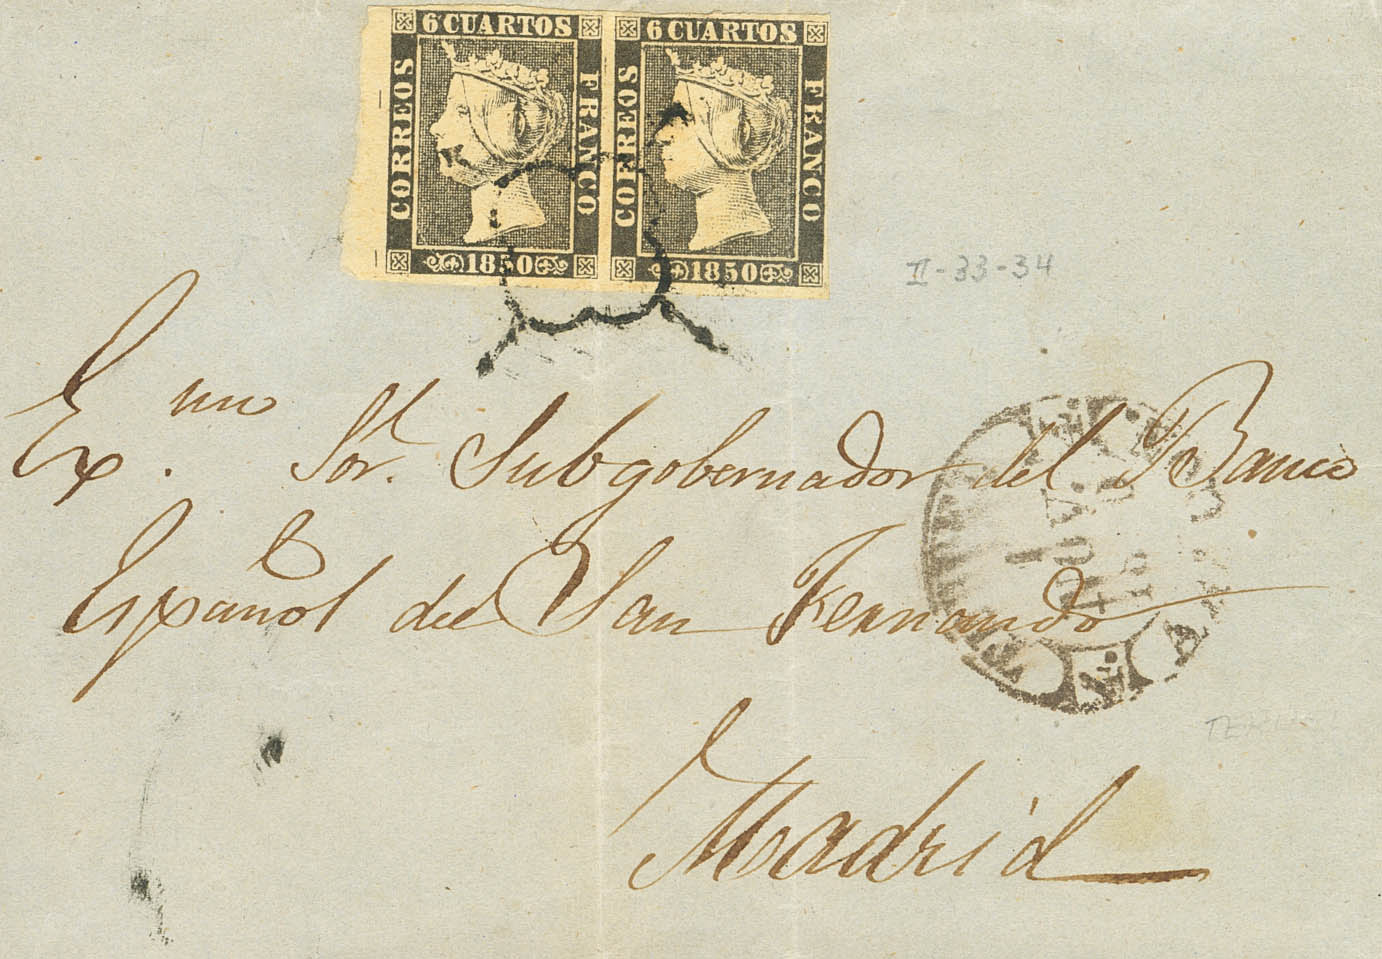 6 CUARTOS 6 CUARTOS
CORREOS FRANCO CORREOS FRANCO
1850 1850
II-33-34
Ex.mo Sor. Subgobernador del Banco
Español de San Fernando
Madrid
TERUEL